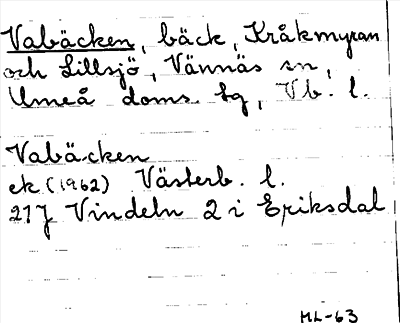 Vabäcken, bäck, Kråkmyran
och Lillsjö, Vännäs sn,
Umeå doms. tg, Vb. l.
Vabäcken
ek (1962) Västerb. l.
21J Vindeln 2 i Eriksdal
ML-63